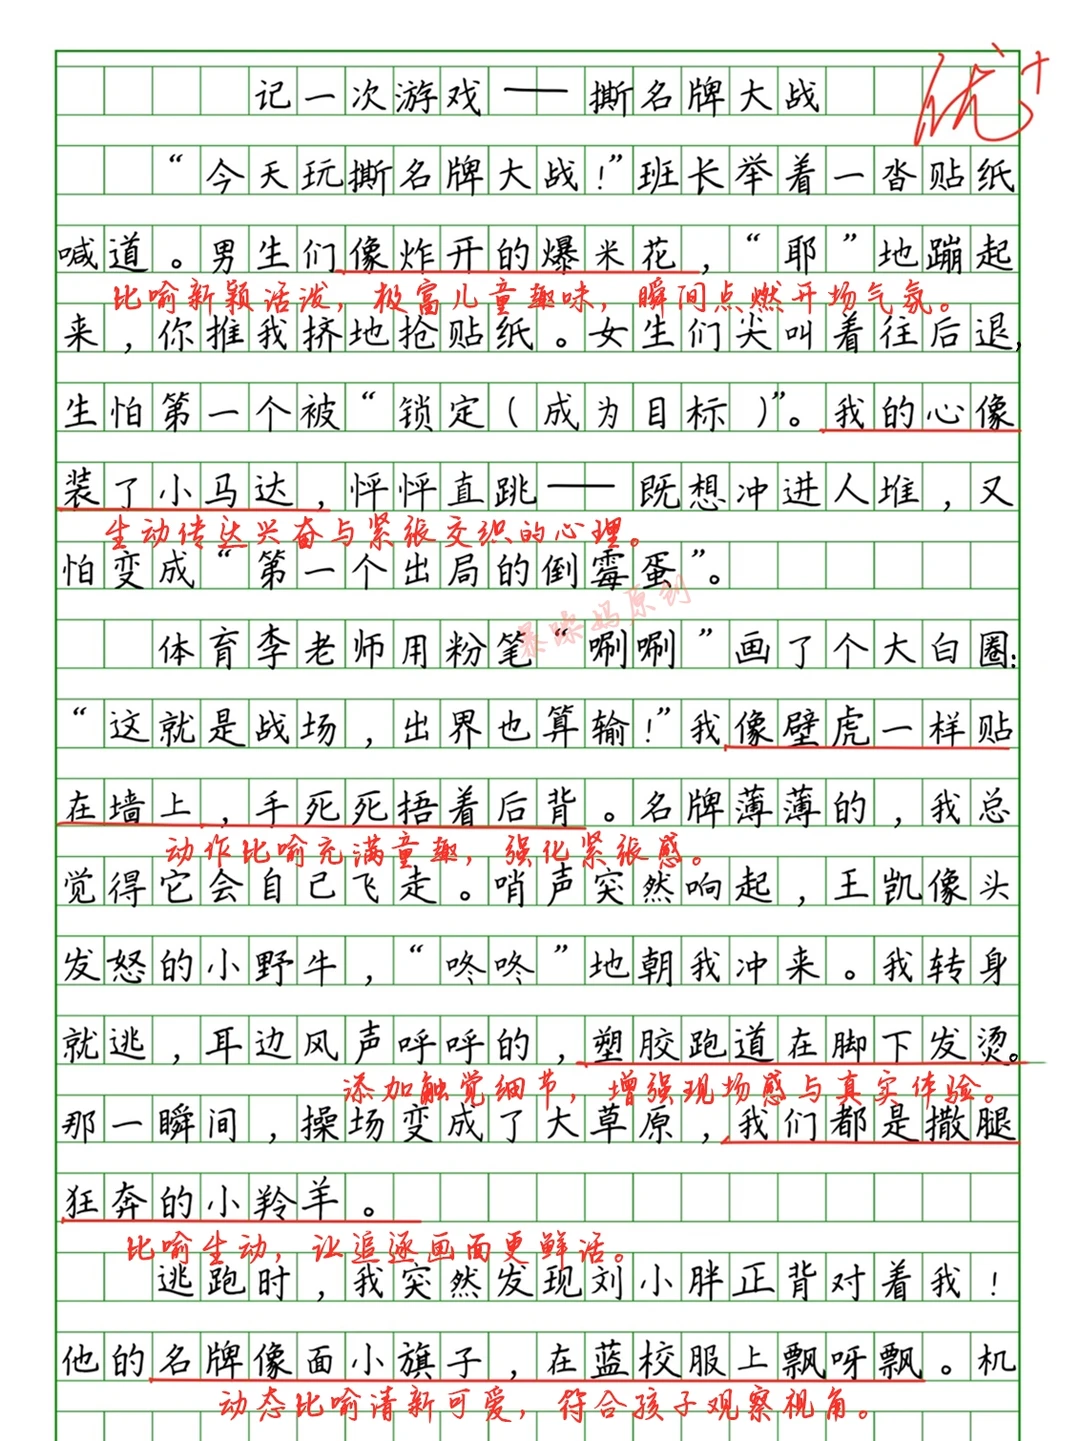 记一次游戏——撕名牌大战
优+
“今天玩撕名牌大战!”班长举着一沓贴纸
喊道。男生们像炸开的爆米花,“耶”地蹦起
比喻新颖活泼,极富儿童趣味,瞬间点燃开场气氛。
来,你推我挤地抢贴纸。女生们尖叫着往后退,
生怕第一个被“锁定(成为目标)”。我的心像
装了小马达,怦怦直跳——既想冲进人堆,又
生动传达兴奋与紧张交织的心理。
怕变成“第一个出局的倒霉蛋”。
暴躁妈原创
体育李老师用粉笔“唰唰”画了个大白圈:
“这就是战场,出界也算输!”我像壁虎一样贴
在墙上,手死死捂着后背。名牌薄薄的,我总
动作比喻充满童趣,强化紧张感。
觉得它会自己飞走。哨声突然响起,王凯像头
发怒的小野牛,“咚咚”地朝我冲来。我转身
就逃,耳边风声呼呼的,塑胶跑道在脚下发烫。
添加触觉细节,增强现场感与真实体验。
那一瞬间,操场变成了大草原,我们都是撒腿
狂奔的小羚羊。
比喻生动,让追逐画面更鲜活。
逃跑时,我突然发现刘小胖正背对着我!
他的名牌像面小旗子,在蓝校服上飘呀飘。机
动态比喻清新可爱,符合孩子观察视角。